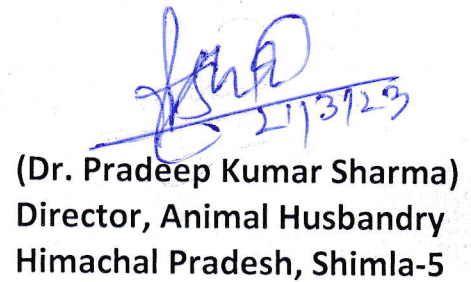 21/3/23
(Dr. Pradeep Kumar Sharma)
Director, Animal Husbandry
Himachal Pradesh, Shimla-5